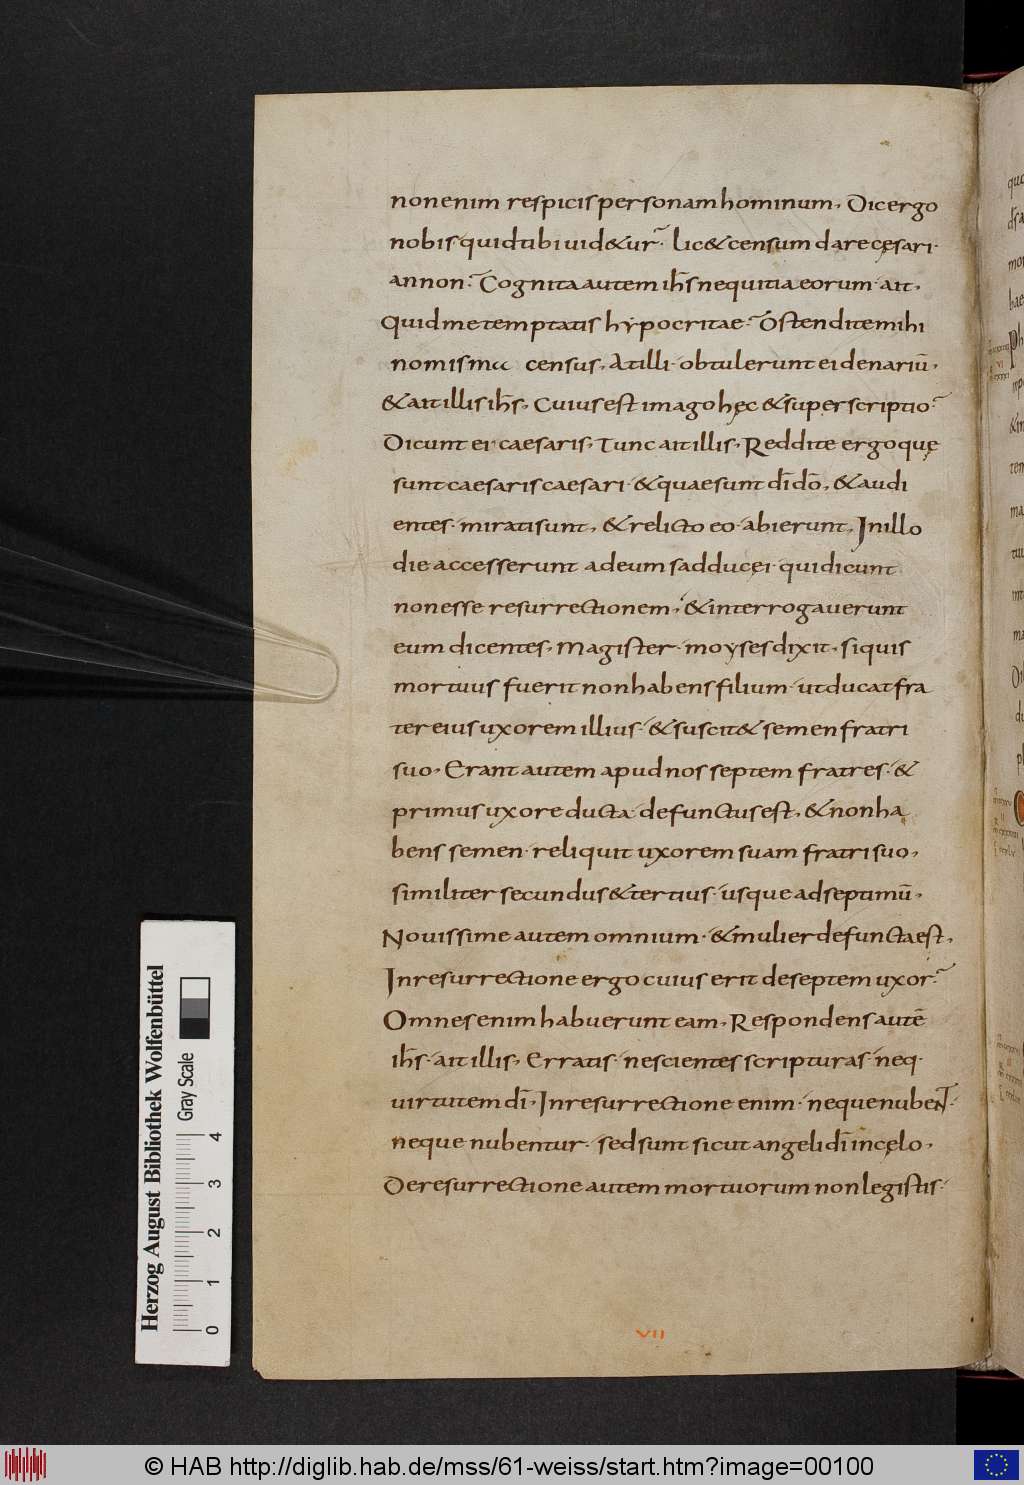 non enim respicis personam hominum. Dic ergo
nobis quid tibi uid&ur. lic& censum dare cęsari
an non. Cognita autem ih̅s nequitia eorum ait.
Quid me temptatis hypocritae. Ostendite mihi
nomisma census. At illi obtulerunt ei denariū.
& ait illis ih̅s. Cuius est imago hęc & superscriptio.
Dicunt ei caesaris. Tunc ait illis. Reddite ergo quę
sunt caesaris caesari & quae sunt dī dō. & audi
entes mirati sunt. & relicto eo abierunt. In illo
die accesserunt ad eum sadducęi qui dicunt
non esse resurrectionem. & interrogauerunt
eum dicentes. Magister moyses dixit. si quis
mortuus fuerit non habens filium ut ducat fra
ter eius uxorem illius & suscit& semen fratri
suo. Erant autem apud nos septem fratres &
primus uxore ducta defunctus est. & non ha
bens semen reliquit uxorem suam fratri suo.
similiter secundus & tertius usque ad septimū.
Nouissime autem omnium & mulier defuncta est.
In resurrectione ergo cuius erit de septem uxor.
Omnes enim habuerunt eam. Respondens autē
ih̅s ait illis. Erratis nescientes scripturas neq·
uirtutem dī. In resurrectione enim neque nubent.
neque nubentur sed sunt sicut angeli dī in cęlo.
De resurrectione autem mortuorum non legistis
VII
Herzog August Bibliothek Wolfenbüttel
Gray Scale
0 1 2 3 4
© HAB http://diglib.hab.de/mss/61-weiss/start.htm?image=00100